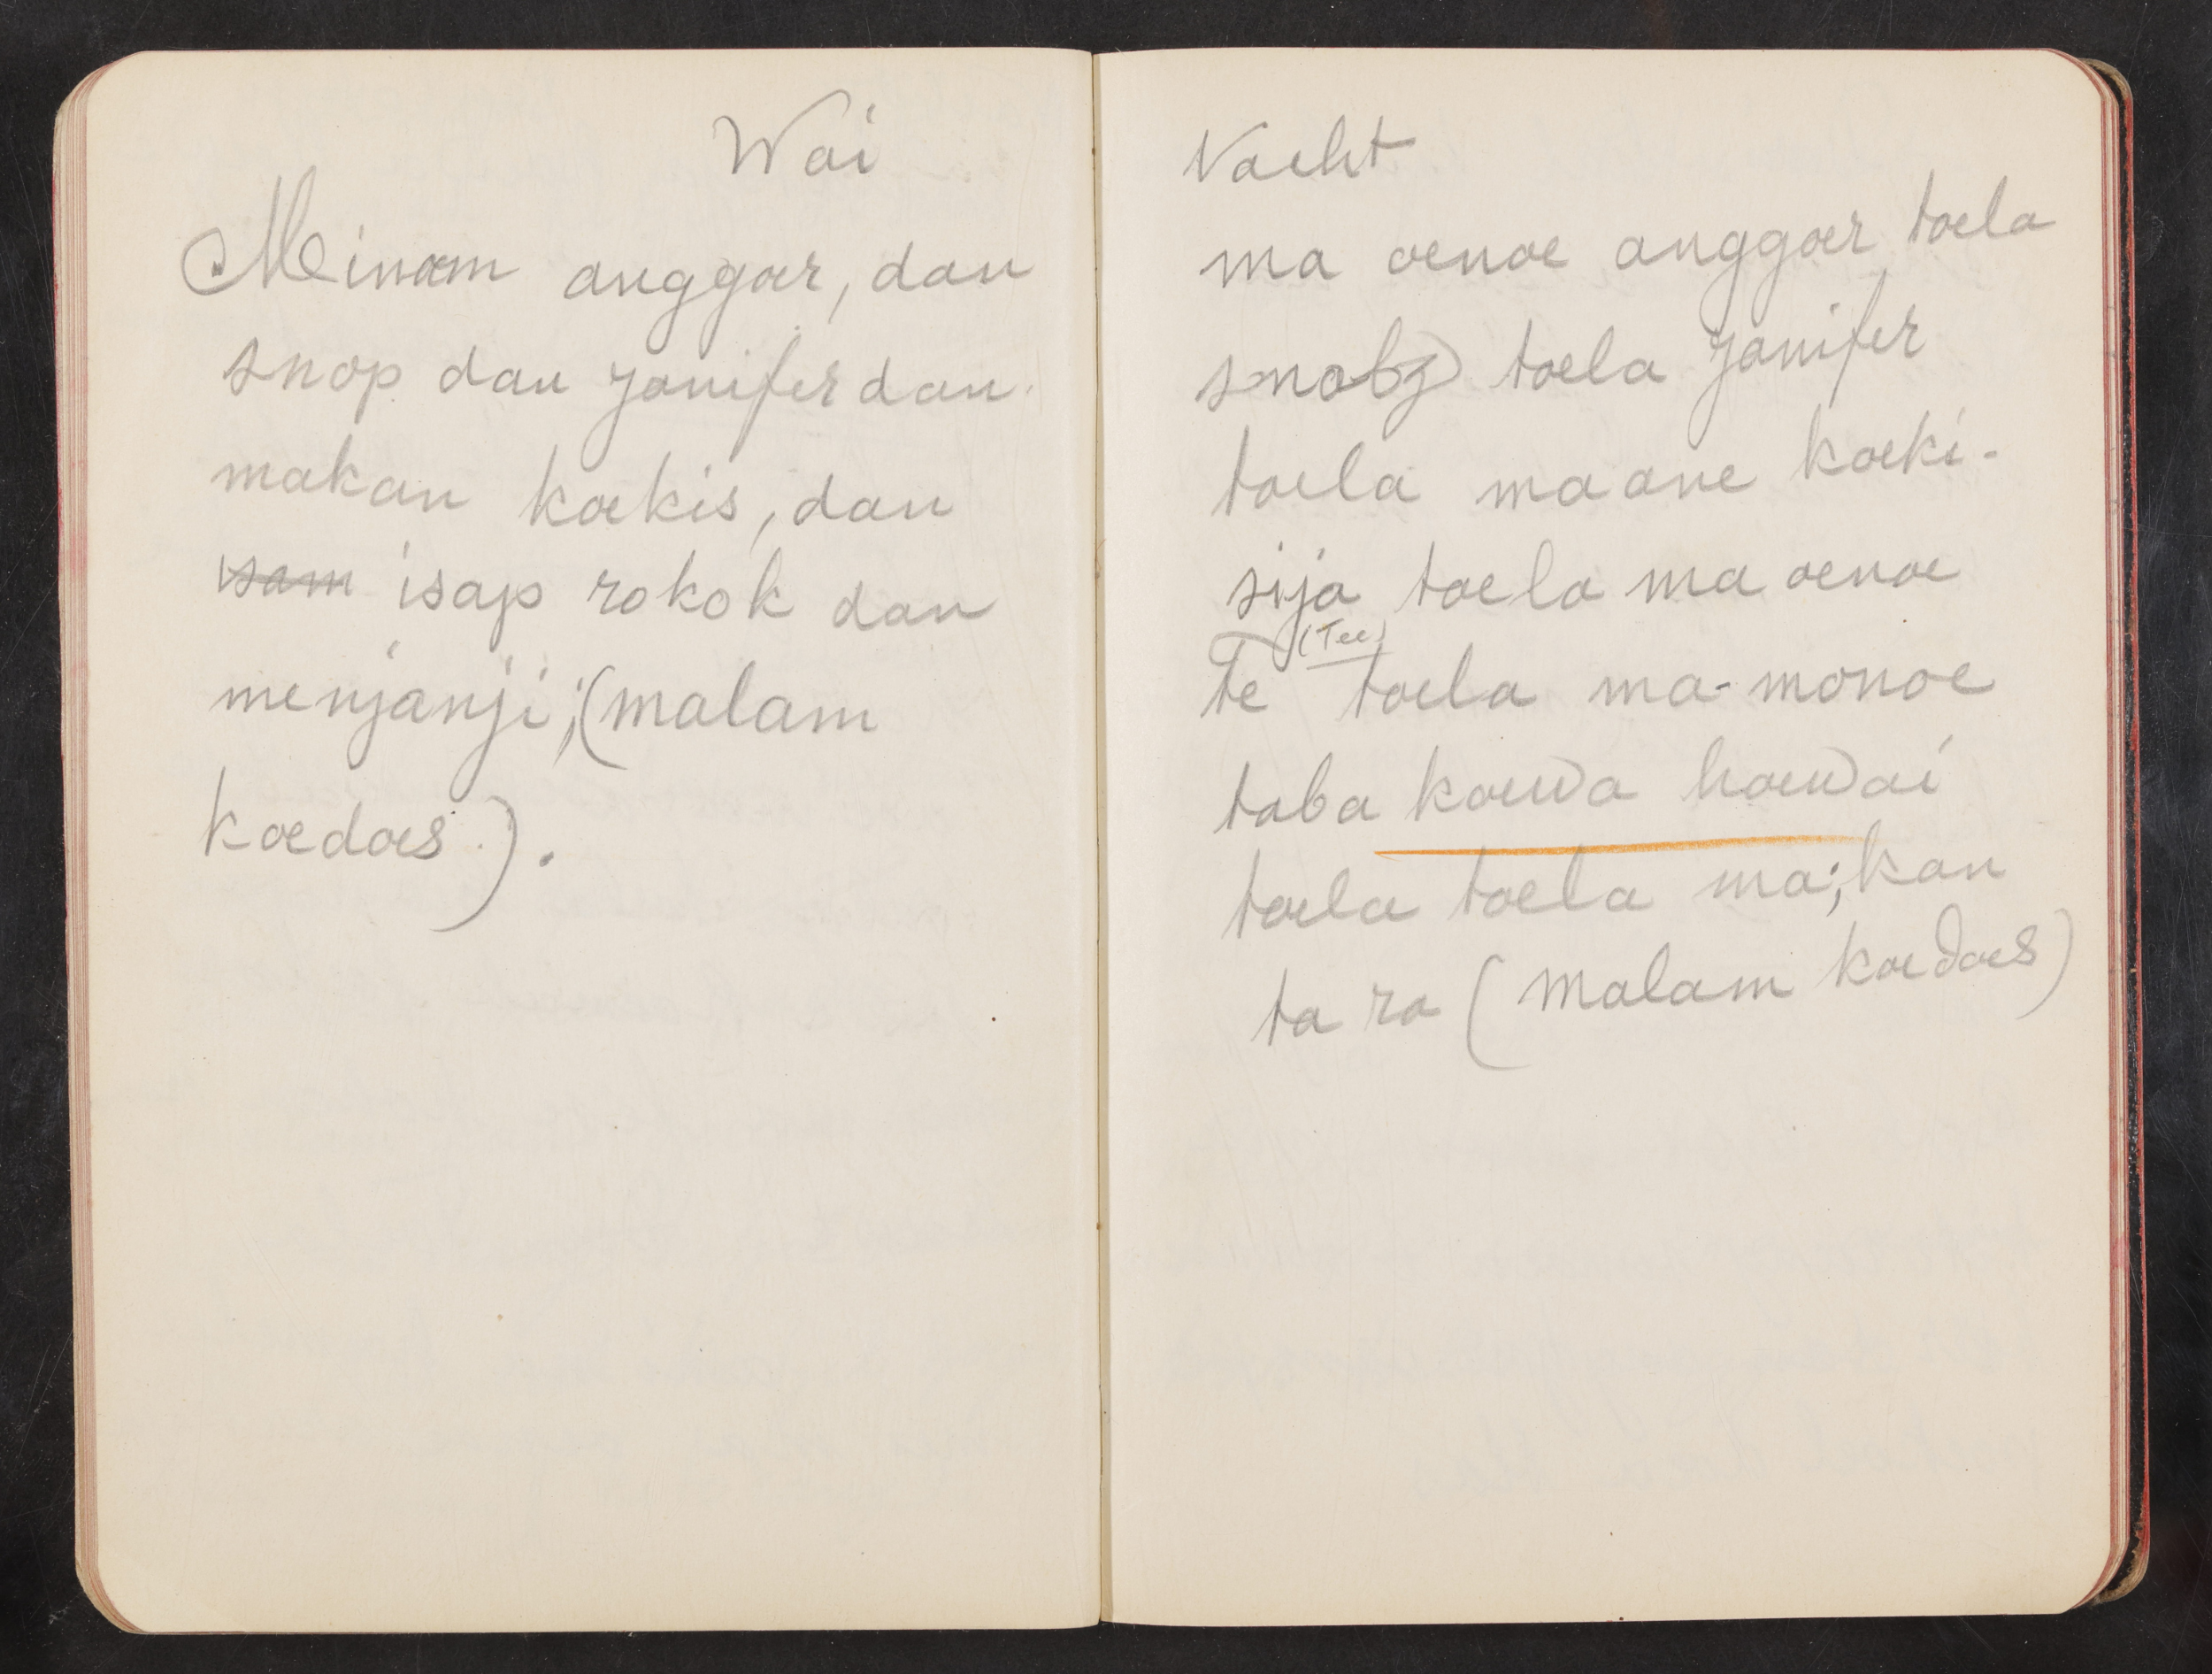 Wai
Meinoem anggoer, dan
snop dan janifer dan
makan koekis, dan
isam isap rokok dan
menjanji; (malam
koedoes).
Nacht
ma oenoe anggoer toela
toela janifer
toela ma ane koeki-
sija toela ma oenoe
(Tee)
Te toela ma-monoe
taba koewa hoewai
toela toela ma; kan
ta ra (malam koedoes)